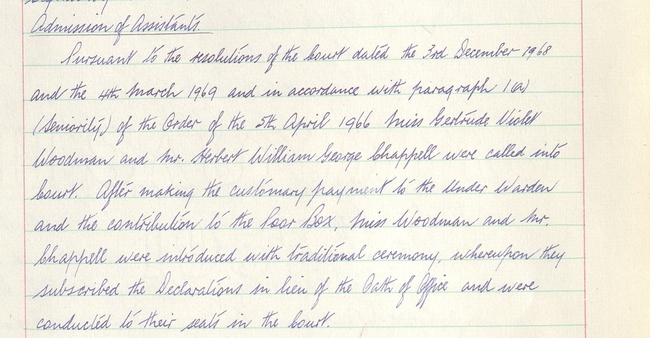 Admission of Assistants.
Pursuant to the resolutions of the Court dated the 3rd December 1968
and the 4th March 1969 and in accordance with paragraph 1(a)
(Seniority) of the Order of the 5th April 1966 Miss Gertrude Violet
Woodman and Mr. Herbert William George Chappell were called into
Court. After making the customary payment to the Under Warden
and the contribution to the Poor Box, Miss Woodman and Mr.
Chappell were introduced with traditional ceremony, whereupon they
subscribed the Declarations in lieu of the Oath of Office and were
conducted to their seats in the Court.